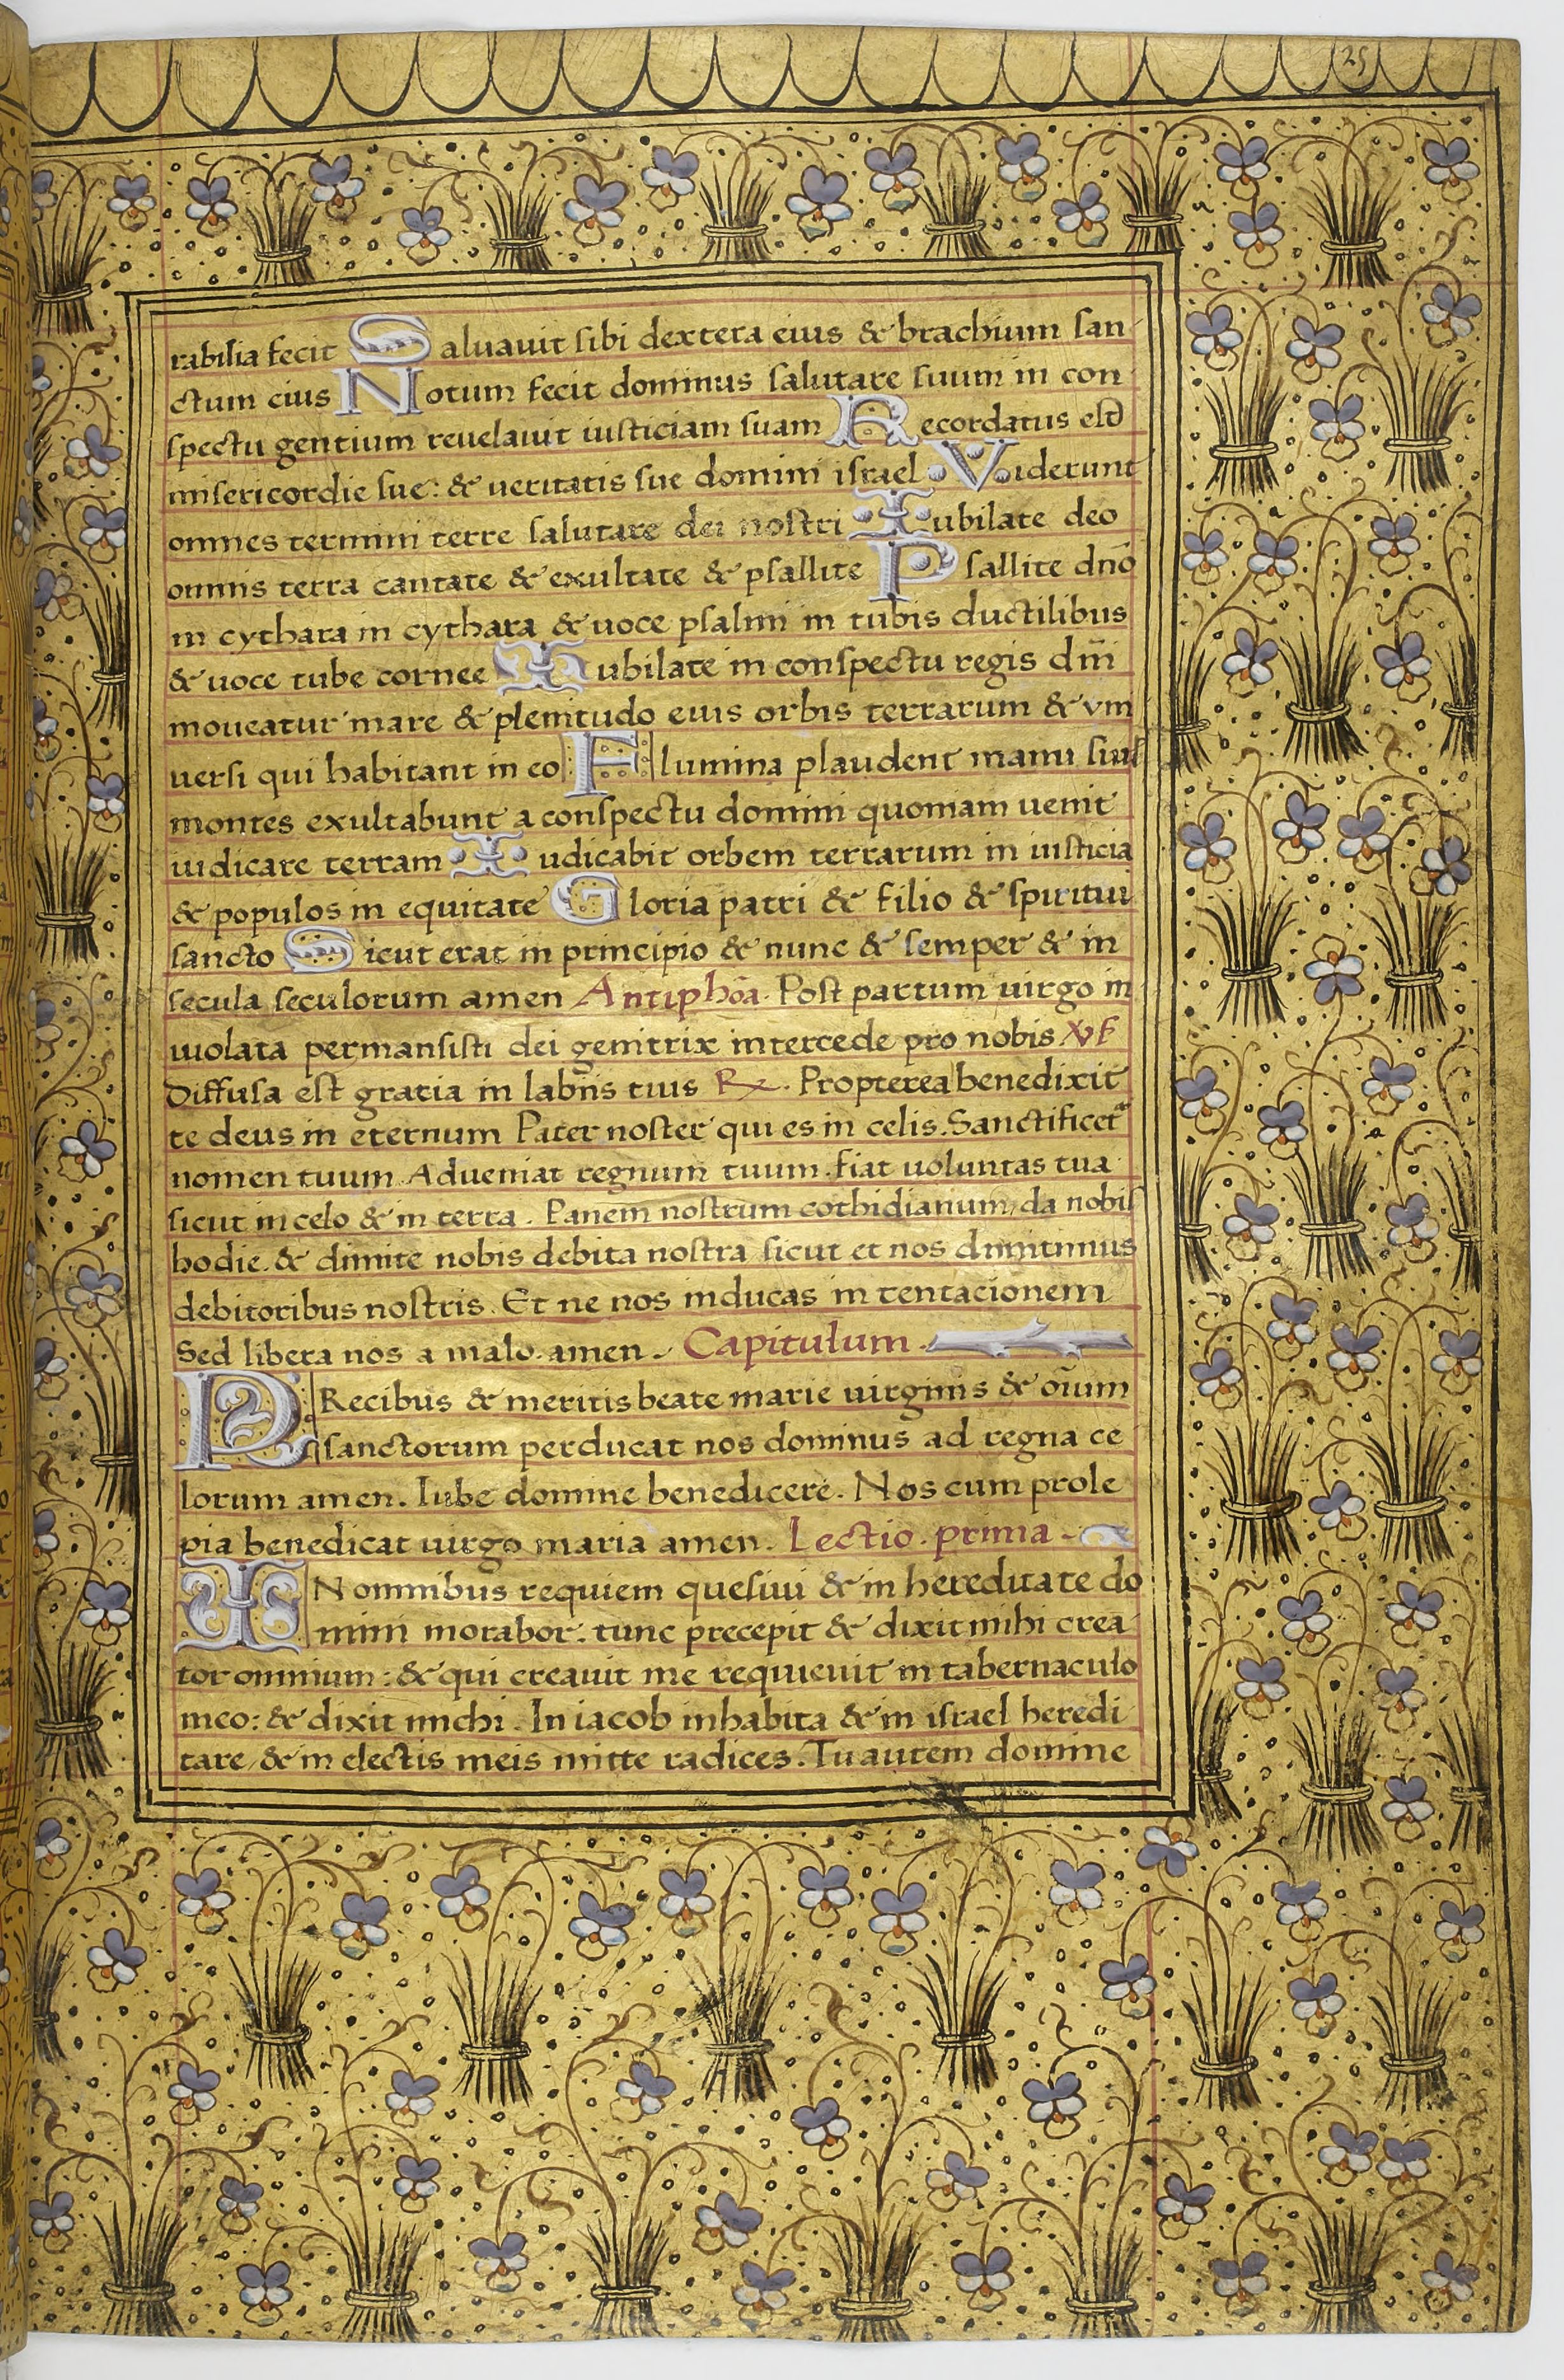 25
rabilia fecit Saluauit sibi dextera eius & brachium san
ctum eius Notum fecit dominus salutare suum in con
spectu gentium reuelauit iusticiam suam Recordatus est
misericordie sue: & ueritatis sue domini israel Viderunt
omnes termini terre salutare dei nostri Iubilate deo
omnis terra cantate & exultate & psallite Psallite dño
in cythara in cythara & uoce psalmi in tubis ductilibus
& uoce tube cornee Iubilate in conspectu regis dm̄
moueatur mare & plenitudo eius orbis terrarum & vni
uersi qui habitant in eo Flumina plaudent manu siul
montes exultabunt a conspectu domini quoniam uenit
iudicare terram Iudicabit orbem terrarum in iusticia
& populos in equitate Gloria patri & filio & spiritui
sancto Sicut erat in principio & nunc & semper & in
secula seculorum amen Antiphōa. Post partum uirgo in
uiolata permansisti dei genitrix intercede pro nobis V̄F
Diffusa est gratia in labiis tuis R. Propterea benedixit
te deus in eternum Pater noster qui es in celis. Sanctificet
nomen tuum. Adueniat regnum tuum. fiat uoluntas tua
sicut in celo & in terra. Panem nostrum cothidianum, da nobis
hodie. & dimite nobis debita nostra sicut et nos dimitimus
debitoribus nostris. Et ne nos inducas in tentacionem
Sed libera nos a malo. amen. Capitulum.
PRecibus & meritis beate marie uirginis & oīum
sanctorum perducat nos dominus ad regna ce
lorum amen. Iube domine benedicere. Nos cum prole
pia benedicat uirgo maria amen. Lectio. prima
IN omnibus requiem quesiui & in hereditate do
mini morabor. tunc precepit & dixit mihi crea
tor omnium: & qui creauit me requieuit in tabernaculo
meo: & dixit michi. In iacob inhabita & in israel heredi
tare, & in electis meis mitte radices. Tu autem domine